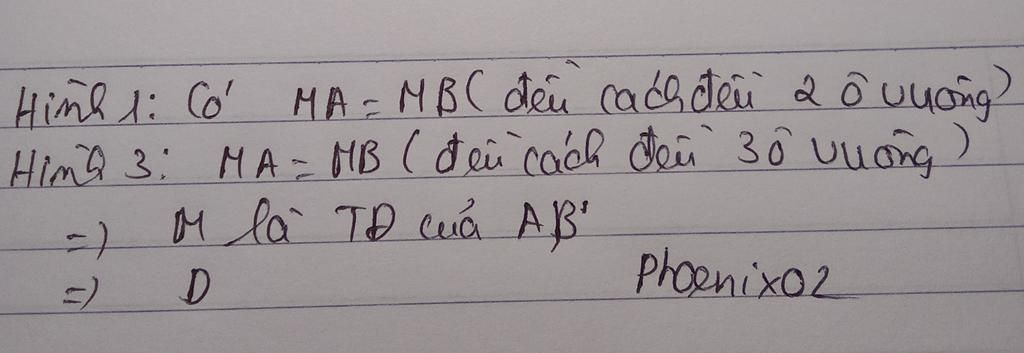 Hình 1: Có MA = MB ( đều cách đều 2 ô vuông)
Hình 3: MA = MB ( đều cách đều 3 ô vuông )
=) M là TĐ của AB
=) D Phoenix02